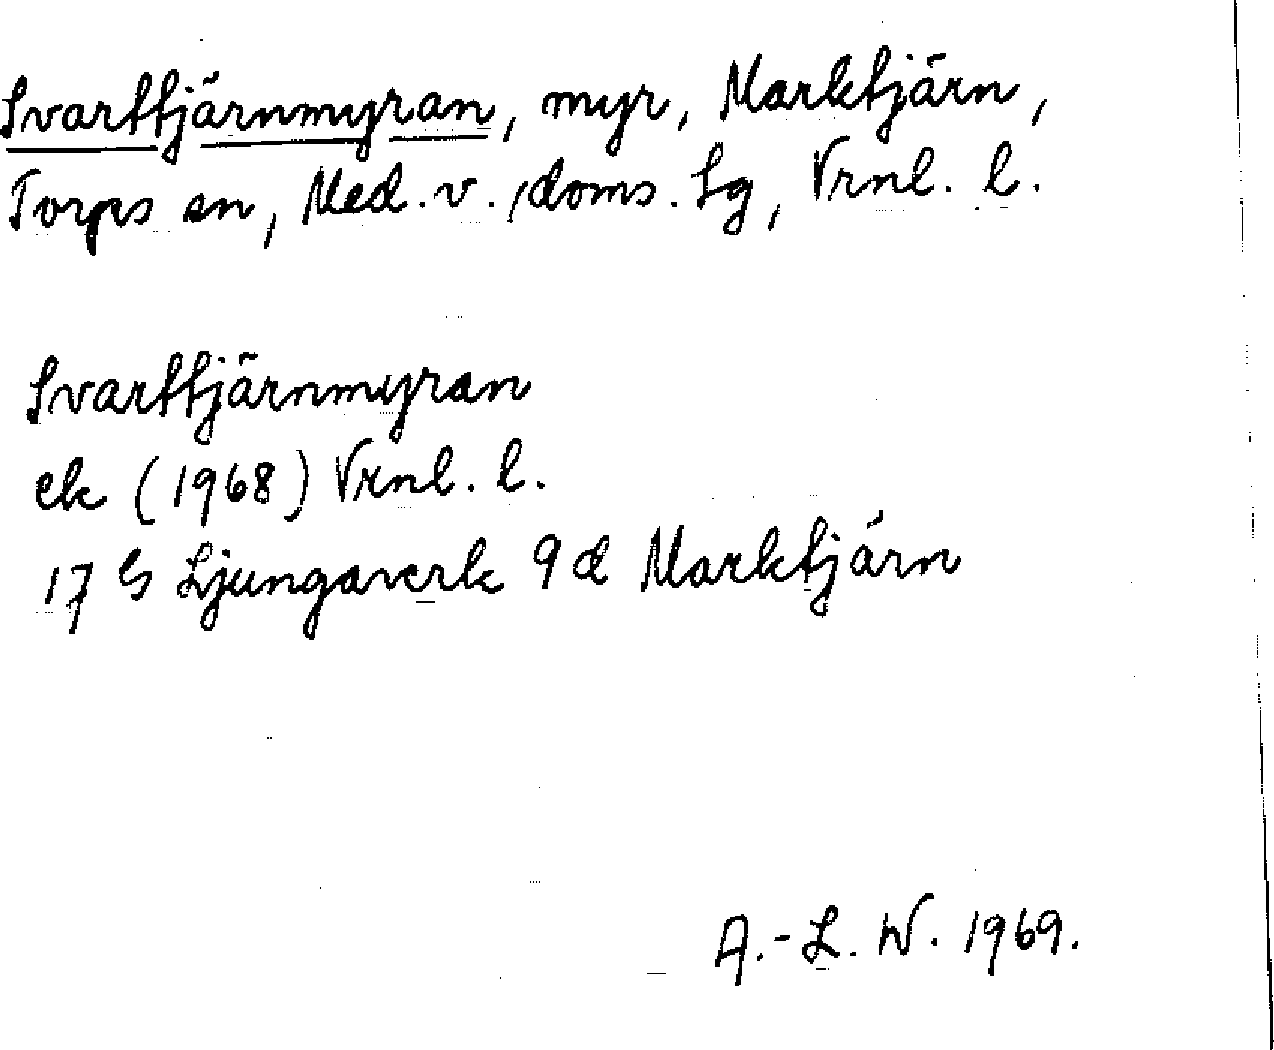 Svarttjärnmyran, myr, Marktjärn,
Torps sn, Med. v. doms. Lg, Vrnl. l.
Svarttjärnmyran
ek (1968) Vrnl. l.
17 G Ljungaverk 9 d Marktjärn
A.-L. W. 1969.